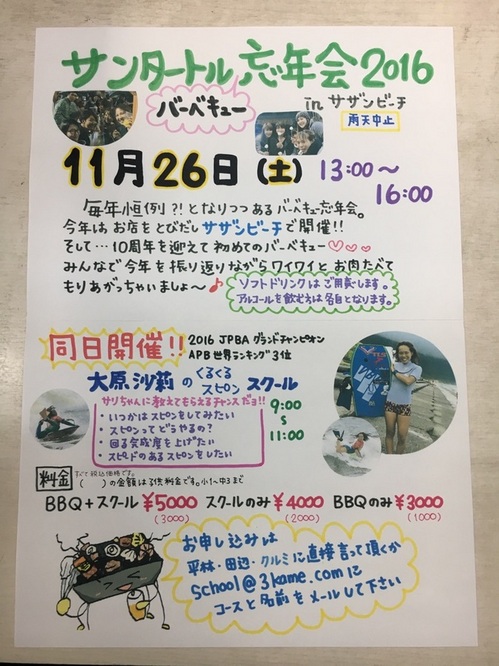 サンタートル忘年会2016
バーベキュー
in サザンビーチ
雨天中止
11月26日(土) 13:00〜
16:00
毎年恒例?!となりつつあるバーベキュー忘年会。
今年はお店をとびだしサザンビーチで開催!!
そして…10周年を迎えて初めてのバーベキュー♡♡♡
みんなで今年を振り返りながらワイワイとお肉たべて
もりあがっちゃいましょ〜♪
ソフトドリンクはご用意します。
アルコールを飲む方は各自となります。
同日開催!!
2016 JPBA グランドチャンピオン
APB世界ランキング3位
大原沙莉のくるくるスピンスクール
サリちゃんに教えてもらえるチャンスだョ!!
・いつかはスピンをしてみたい
・スピンってどうやるの?
・回る完成度を上げたい
・スピードのあるスピンをしたい
9:00
〜
11:00
料金 すべて税込価格です。
( )の金額は子供料金です。小1〜中3まで
BBQ+スクール ¥5000 スクールのみ ¥4000 BBQのみ ¥3000
(3000) (2000) (1000)
お申し込みは
平林・田辺・クルミに直接言って頂くか
school@3kame.comに
コースと名前をメールして下さい